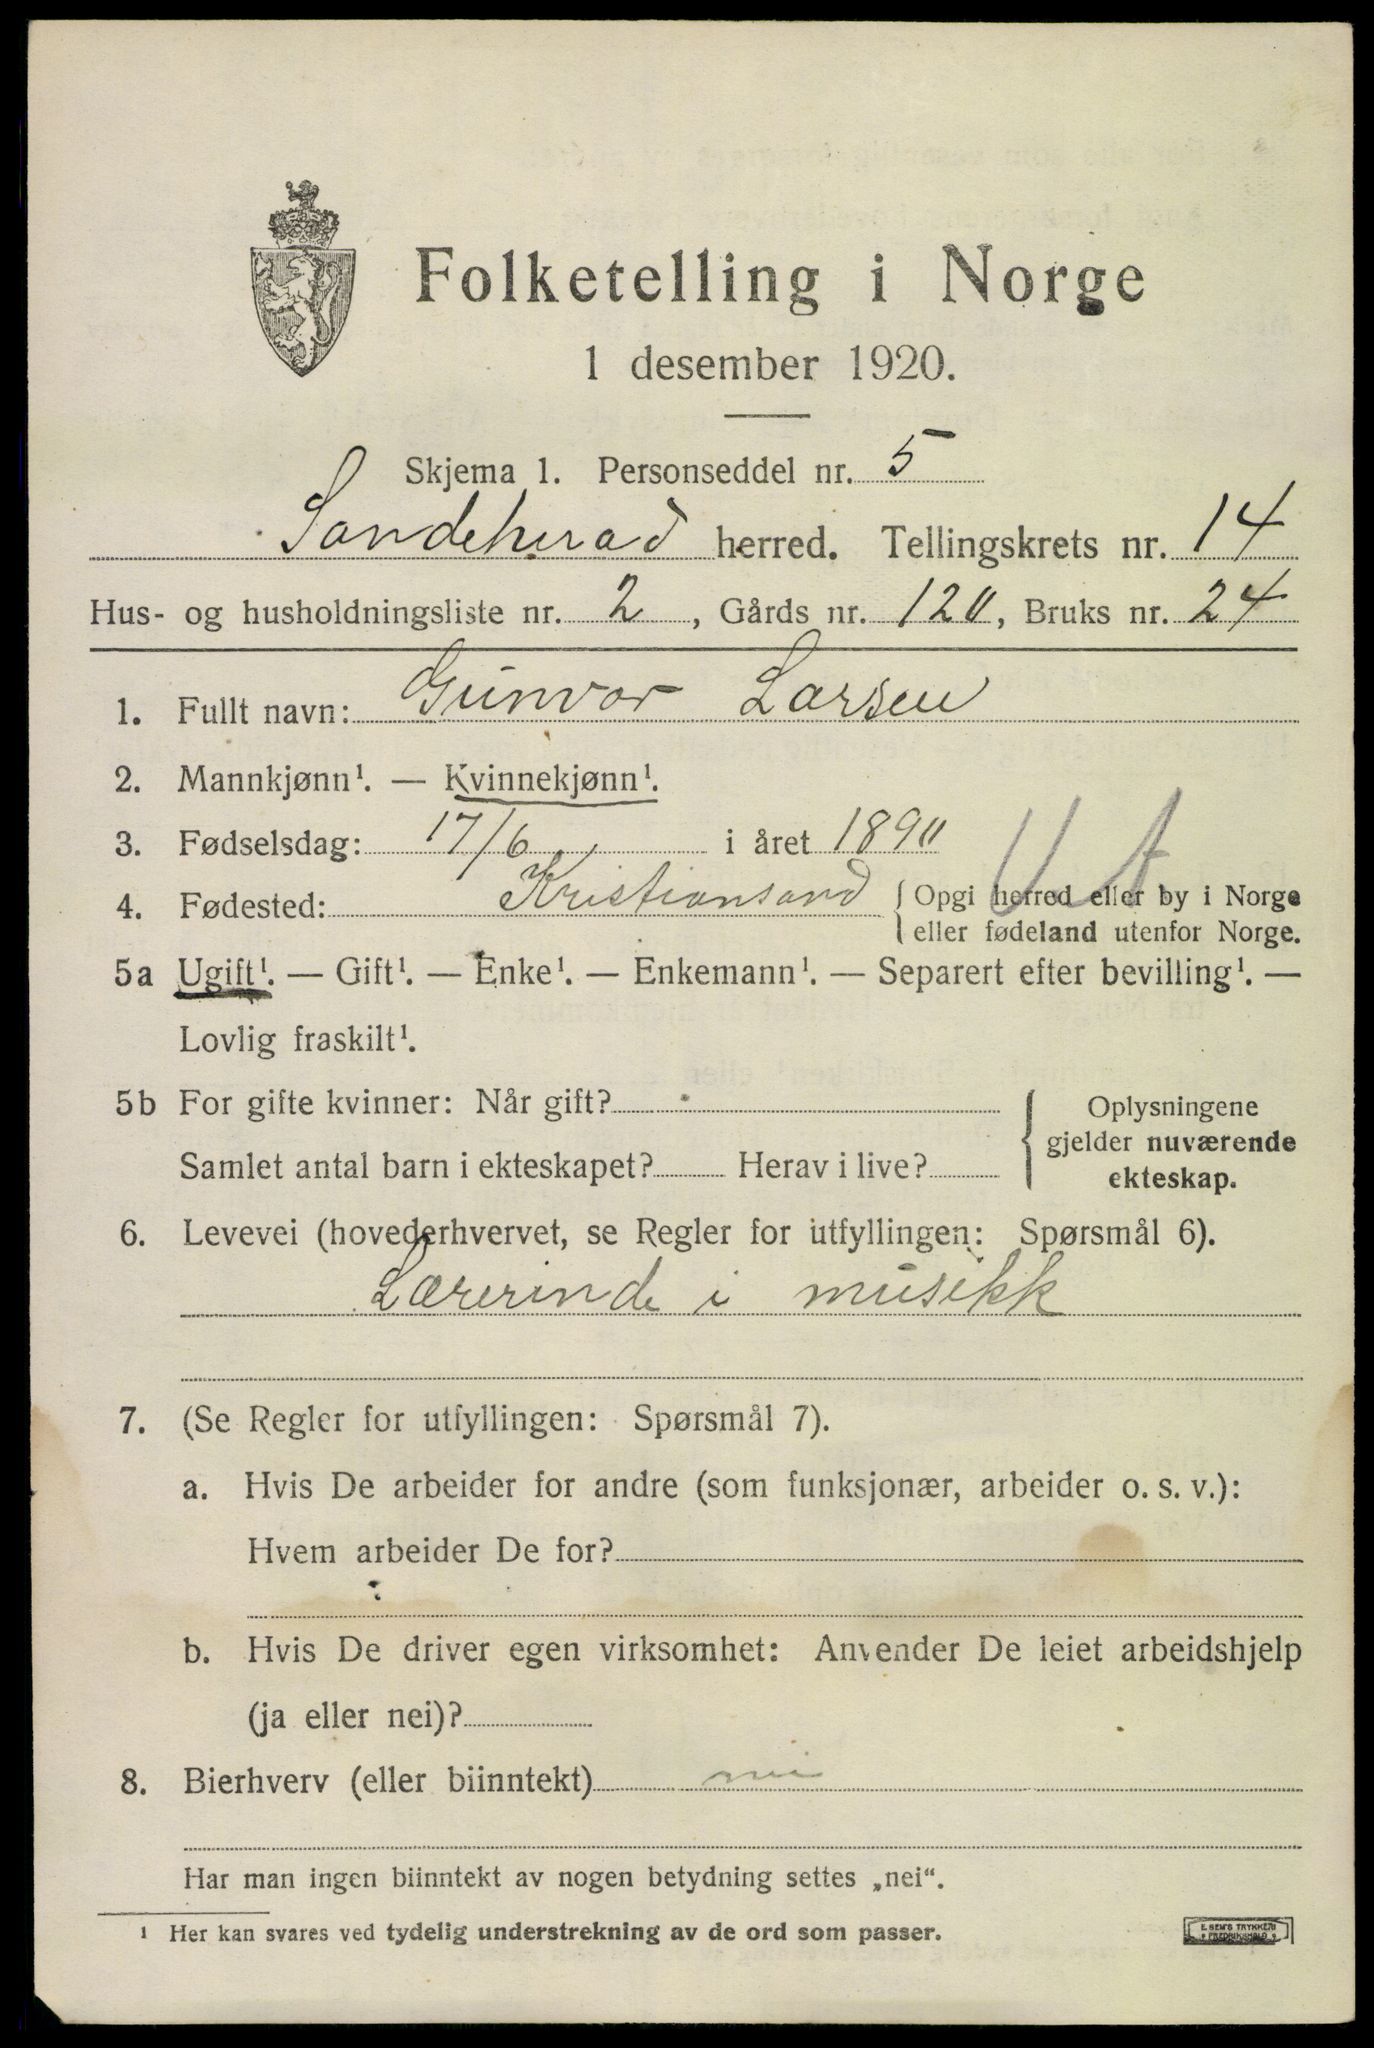 Folketelling i Norge
1 desember 1920.
Skjema 1. Personseddel nr. 5
Sandeherad herred. Tellingskrets nr. 14
Hus- og husholdningsliste nr. 2, Gårds nr. 120, Bruks nr. 24
1. Fullt navn: Gunvor Larsen
2. Mannkjønn¹. — Kvinnekjønn¹.
3. Fødselsdag: 17/6 i året 1890
4. Fødested: Kristiansand { Opgi herred eller by i Norge
eller fødeland utenfor Norge.
5a Ugift¹. — Gift¹. — Enke¹. — Enkemann¹. — Separert efter bevilling¹. —
Lovlig fraskilt¹.
5b For gifte kvinner: Når gift?
Samlet antal barn i ekteskapet? Herav i live?
Oplysningene
gjelder nuværende
ekteskap.
6. Levevei (hovederhvervet, se Regler for utfyllingen: Spørsmål 6).
Lærerinde i musikk
7. (Se Regler for utfyllingen: Spørsmål 7).
a. Hvis De arbeider for andre (som funksjonær, arbeider o. s. v.):
Hvem arbeider De for?
b. Hvis De driver egen virksomhet: Anvender De leiet arbeidshjelp
(ja eller nei)?
8. Bierhverv (eller biinntekt) nei
Har man ingen biinntekt av nogen betydning settes „nei“.
¹ Her kan svares ved tydelig understrekning av de ord som passer.
E. SEM'S TRYKKERI
FREDRIKSHALD